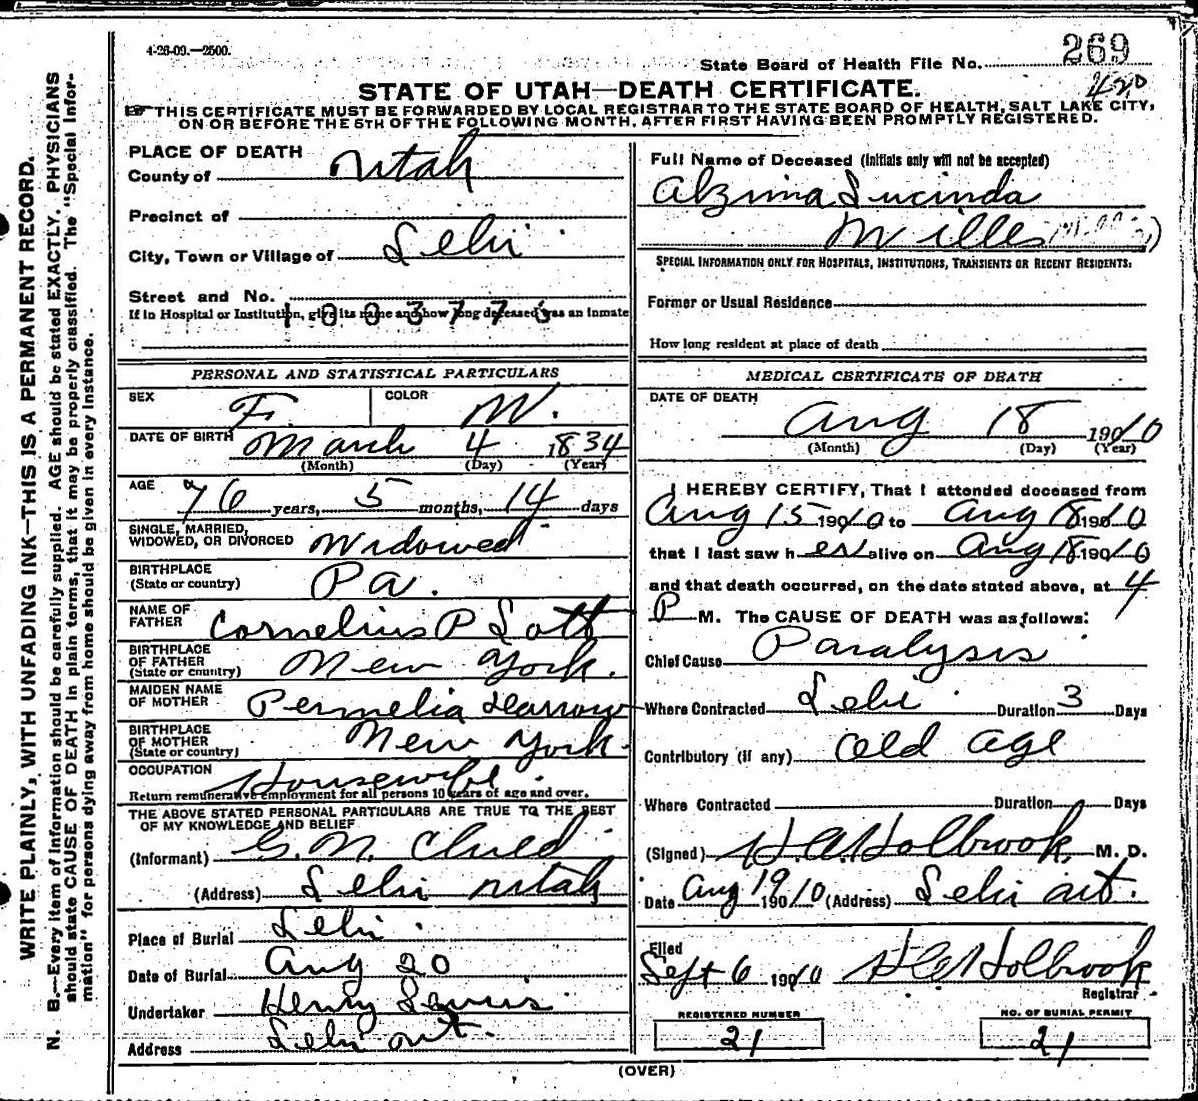 4-26-09.—2500.
State Board of Health File No. 269
420
STATE OF UTAH—DEATH CERTIFICATE.
THIS CERTIFICATE MUST BE FORWARDED BY LOCAL REGISTRAR TO THE STATE BOARD OF HEALTH, SALT LAKE CITY,
ON OR BEFORE THE 5TH OF THE FOLLOWING MONTH, AFTER FIRST HAVING BEEN PROMPTLY REGISTERED.
WRITE PLAINLY, WITH UNFADING INK—THIS IS A PERMANENT RECORD.
N. B.—Every item of information should be carefully supplied. AGE should be stated EXACTLY. PHYSICIANS
should state CAUSE OF DEATH in plain terms, that it may be properly classified. The "Special Infor-
mation" for persons dying away from home should be given in every instance.
PLACE OF DEATH
County of Utah
Precinct of
City, Town or Village of Lehi
Street and No.
1003775
If in Hospital or Institution, give its name and how long deceased was an inmate
PERSONAL AND STATISTICAL PARTICULARS
SEX F. COLOR W.
DATE OF BIRTH March 4 1834
(Month) (Day) (Year)
AGE 76 years, 5 months, 14 days
SINGLE, MARRIED,
WIDOWED, OR DIVORCED Widowed
BIRTHPLACE
(State or country) Pa.
NAME OF
FATHER Cornelius P Lott
BIRTHPLACE
OF FATHER
(State or country) New York.
MAIDEN NAME
OF MOTHER Permelia Darrow
BIRTHPLACE
OF MOTHER
(State or country) New York.
OCCUPATION Housewife.
Return remunerative employment for all persons 10 years of age and over.
THE ABOVE STATED PERSONAL PARTICULARS ARE TRUE TO THE BEST
OF MY KNOWLEDGE AND BELIEF
(Informant) G. N. Child
(Address) Lehi Utah
Place of Burial Lehi.
Date of Burial Aug 20
Undertaker Henry Lewis
Address Lehi Ut.
Full Name of Deceased (Initials only will not be accepted)
Alzina Lucinda
Willes
SPECIAL INFORMATION ONLY FOR HOSPITALS, INSTITUTIONS, TRANSIENTS OR RECENT RESIDENTS:
Former or Usual Residence
How long resident at place of death
MEDICAL CERTIFICATE OF DEATH
DATE OF DEATH
Aug 18 1910
(Month) (Day) (Year)
I HEREBY CERTIFY, That I attended deceased from
Aug 15 1910 to Aug 18 1910
that I last saw her alive on Aug 18 1910
and that death occurred, on the date stated above, at 4
P M. The CAUSE OF DEATH was as follows:
Chief Cause Paralysis
Where Contracted Lehi Duration 3 Days
Contributory (if any) Old Age
Where Contracted Duration Days
(Signed) H.A. Holbrook, M. D.
Date Aug 19 1910 (Address) Lehi Ut.
Filed
Sept 6 1910 H A Holbrook
Registrar
REGISTERED NUMBER
21
NO. OF BURIAL PERMIT
21
(OVER)